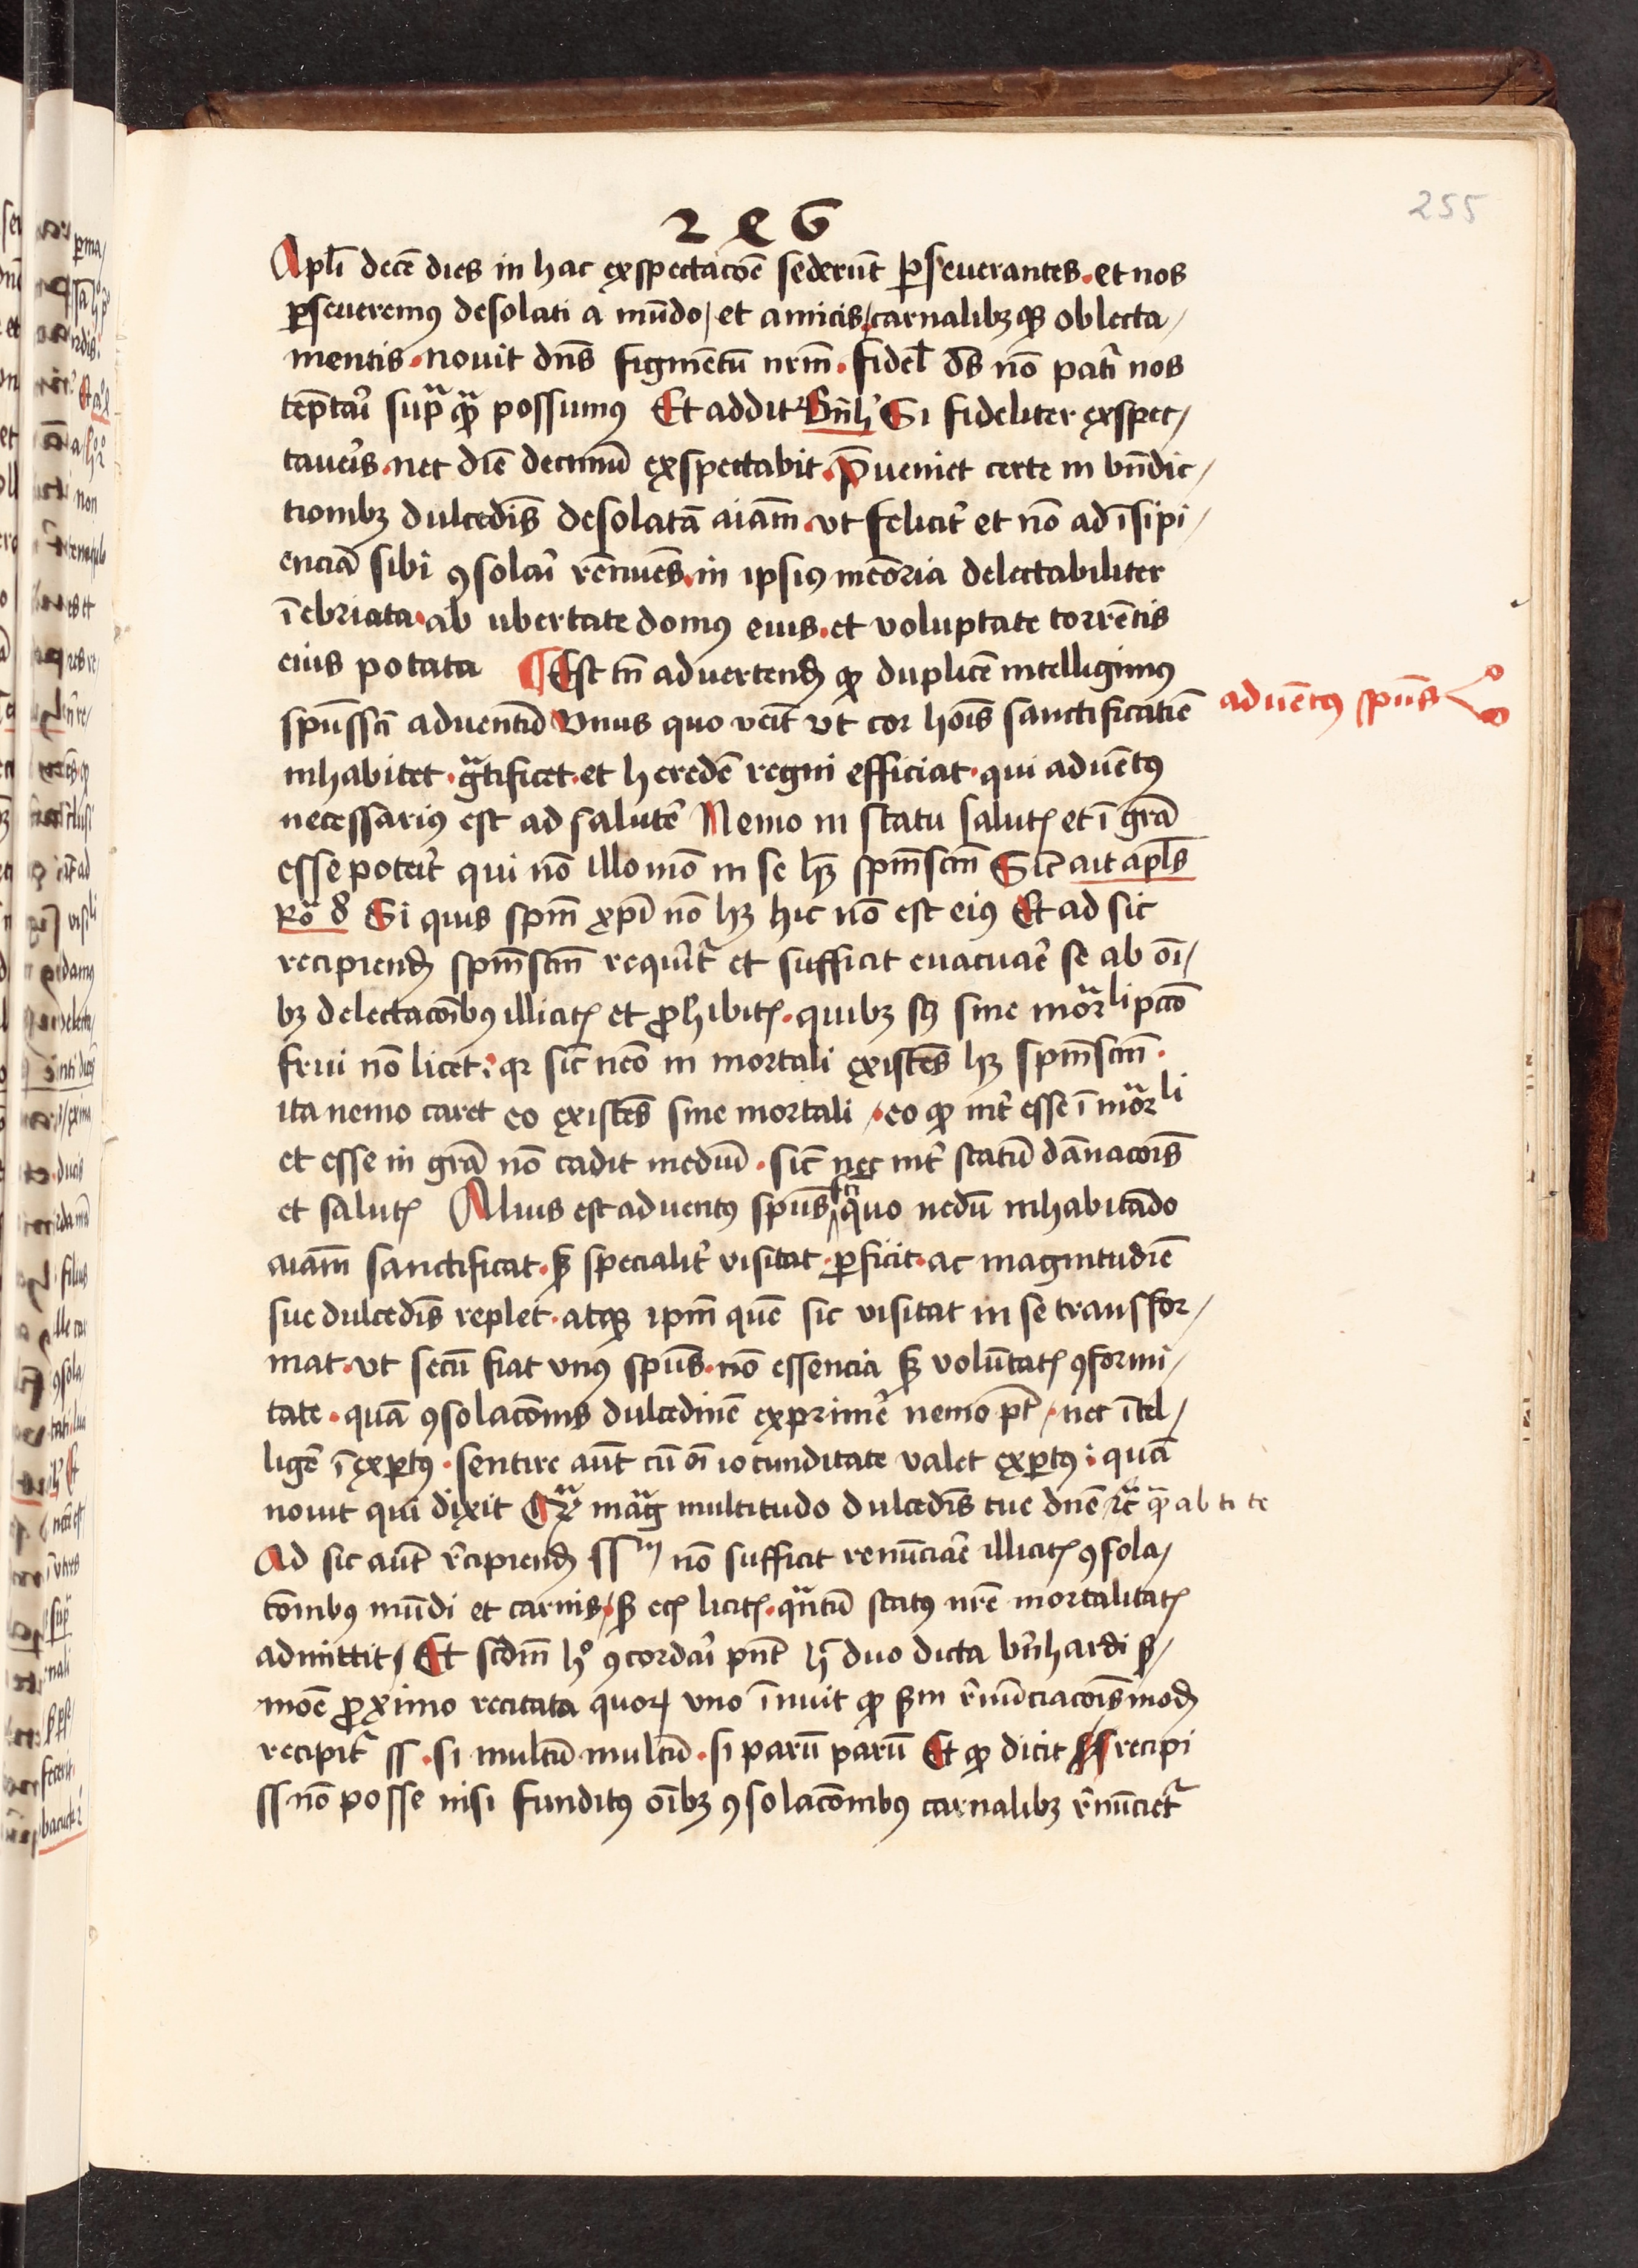 255
2 e 6
Apl̄i decē dies in hac exspectacōe sederūt perseuerantes. et nos
ꝑseueremꝰ desolati a mūdo / et amicis / carnalibꝫqꝫ oblecta /
mentis. nouit dn̄s figmētū nr̄m. fidel̄ ds̄ nō patr̄ nos
tēptai᷑ supͣ qͣ possumꝰ Et addit᷑ Bn̄h᷑ Si fideliter exspec /
taueͥis. nec diē decimū exspectabit. p̄ueniet certe in bn̄dic /
tionibꝫ dulcedīs desolatā aīam. vt felicit᷑ et nō ad īsipi /
enciā sibi ꝯsolai᷑ rēnuēs. in ipsiꝰ meōria delectabiliter
īebriata. ab ubertate domꝰ eius. et voluptate torrētis
eius potata ¶ Est tn̄ aduertend̄ ꝙ duplicē intelligimꝰ
spūssc̄i aduentū Vnus quo veīt vt cor hoīs sanctificatiē
aduētꝰ spūs
inhabitet. gͣtificet. et heredē regni efficiat. qui aduētꝰ
necessariꝰ est ad salutē Nemo in statu salutꝭ et ī grā
esse poteͥt qui nō illo mō in se hꝫ spm̄scm̄ Sic̄ ait apl̄s
Ro᷑ 8 Si quis spm̄ xpi̅ nō hꝫ hic nō est eiꝰ Et ad sic
recipiend̄ spm̄scm̄ requirit᷑ et sufficit euacuar̄e se ab oī /
bꝫ delectacōibꝰ illicitꝭ et ꝓhibitꝭ. quibꝫ sꝫ sine morͣli pccō
frui nō licet: qꝛ sic̄ nēo in mortali existēs hꝫ spm̄scm̄.
ita nemo caret eo existēs sine mortali /. eo ꝙ int᷑ esse ī morͣli
et esse in grā nō cadit mediū. sic̄ nec int᷑ statū dānacōis
et salutꝭ Alius est aduentus spūs sc̄i quo nedū inhabitādo
aīam sanctificat. sꝫ specialit᷑ visitat. ꝑficit. ac magnitudiē
sue dulcedīs replet. atqꝫ ipm̄ quē sic visitat in se transfor /
mat. vt secū fiat vnꝰ spūs. nō essencia sꝫ volūtatꝭ ꝯformi /
tate. quā ꝯsolacōnis dulcedinē exprimē nemo pt̄ /. nec ītel /
ligē īexꝑtꝰ. sentire aūt cū oī iocunditate valet exꝑtꝰ: quā
nouit qui dixit Qͣ maͣg multitudo dulcedīs tue dn̄e rc̄ qͣ ab ti te
Ad sic aūt r̄cipiend̄ ssᵐ nō sufficit renūciar̄e illicitꝭ ꝯsola /
cōnibꝰ mūdi et carnis /. sꝫ ecꝭ licitꝭ. qͣntū statꝰ nr̄e mortalitatꝭ
admittit / Et scdm̄ hᵒ ꝯcordai᷑ pn̄t h̄ duo dicta br̄nhardi s̄ /
mōe ꝓximo recitata quoꝝ vno īnuit ꝙ sm̄ r̄nūciacōis mod̄
recipit᷑ ss. si multū multū. si parū parū Et ꝙ dicit recipi
ss nō posse nisi funditꝰ oībꝫ ꝯsolacōnibꝰ carnalibꝫ r̄nūciet᷑